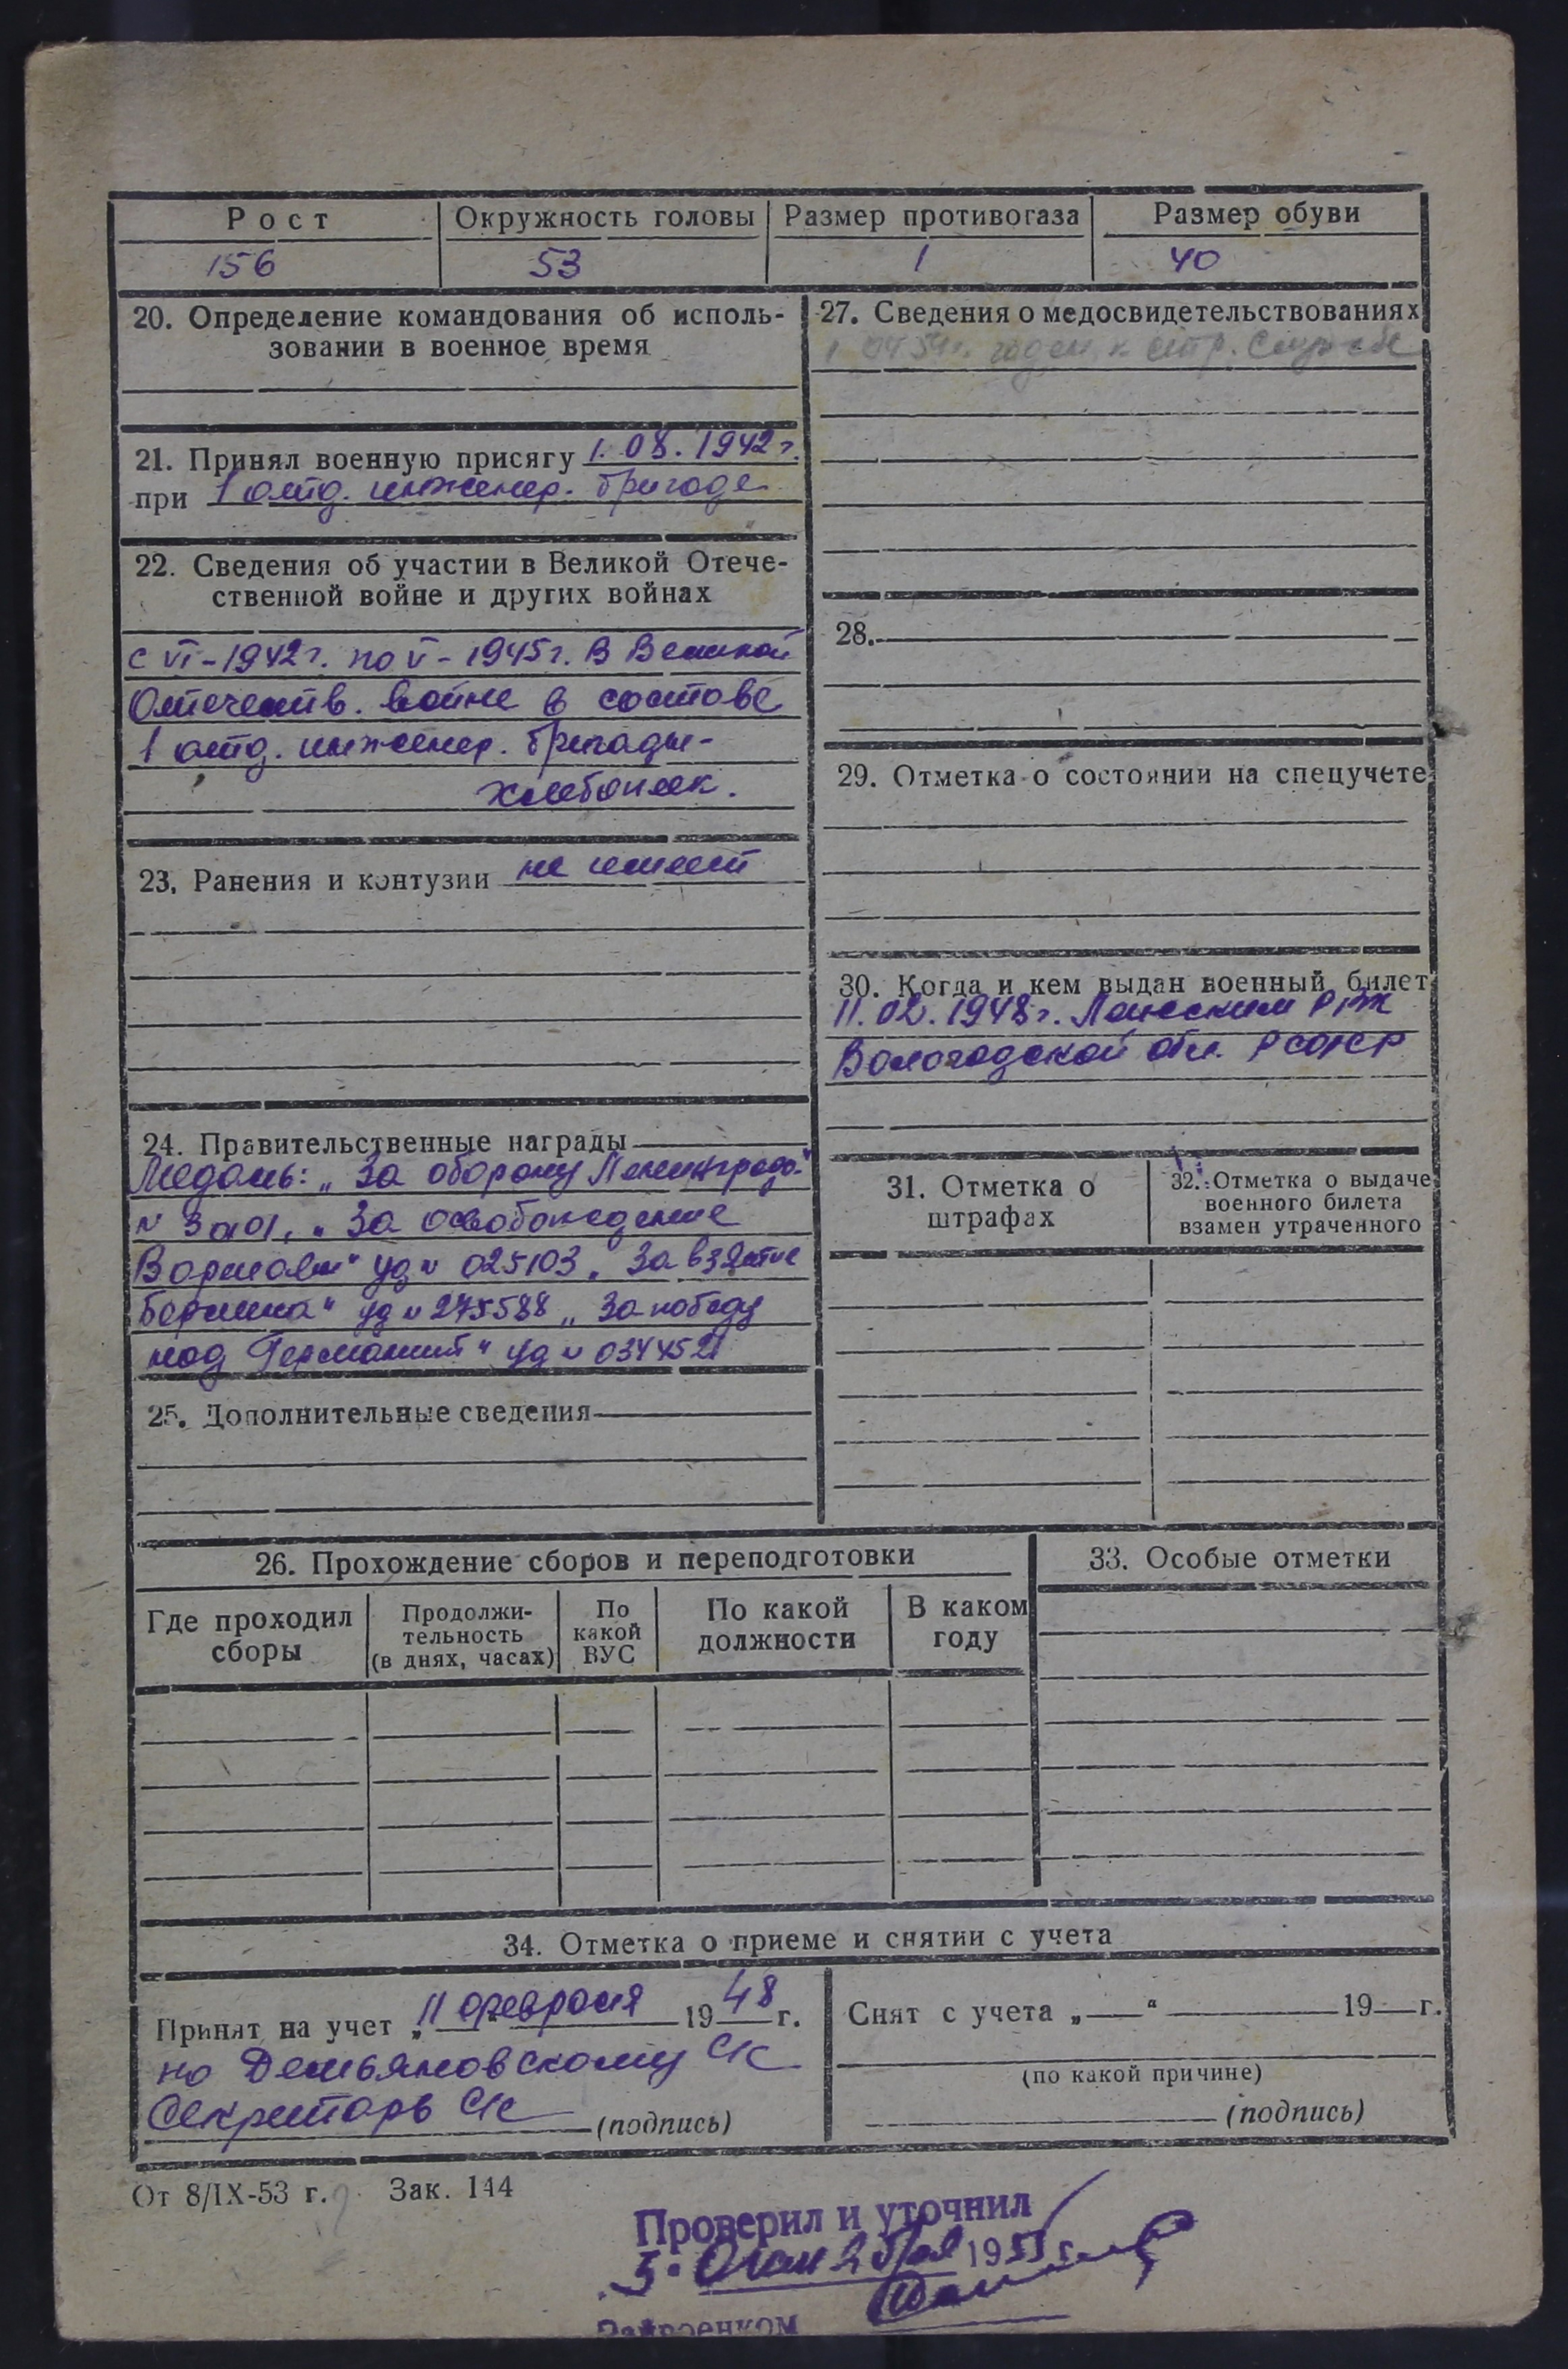 Рост Окружность головы Размер противогаза Размер обуви
156 53 1 40
20. Определение командования об исполь-
зовании в военное время
21. Принял военную присягу 1.08.1942 г.
при 1 отд. инженер. бригаде
22. Сведения об участии в Великой Отече-
ственной войне и других войнах
с VI-1942 г. по V-1945 г. в Великой
Отечеств. войне в составе
1 отд. инженер. бригады-
хлебопек.
23. Ранения и контузии не имеет
24. Правительственные награды
Медаль: „За оборону Ленинграда"
N „За освобождение
Варшавы" уд N 025103 „За взятие
Берлина" уд N 275588 „За победу
над Германией" уд N 0344521
25. Дополнительные сведения
27. Сведения о медосвидетельствованиях
годен к стр. службе
28.
29. Отметка о состоянии на спецучете
30. Когда и кем выдан военный билет
11.02.1948 г. РВК
Вологодской обл. РСФСР
31. Отметка о
штрафах
32. Отметка о выдаче
военного билета
взамен утраченного
26. Прохождение сборов и переподготовки
Где проходил
сборы
Продолжи-
тельность
(в днях, часах)
По
какой
ВУС
По какой
должности
В каком
году
33. Особые отметки
34. Отметка о приеме и снятии с учета
Принят на учет „11 февраля 1948 г.
по Демьяновскому С/с
Секретарь С/с (подпись)
Снят с учета „ " 19 г.
(по какой причине)
(подпись)
От 8/IX-53 г. Зак. 144
Проверил и уточнил
5. 1955 г.
Райвоенком